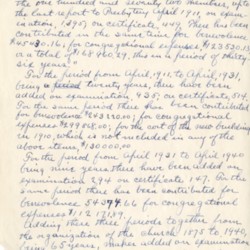 the one hundred and seventy one members, up to
the last report to Presbytery 1911 by on exam-
ination, #395 on certificate, 447. There has been
contributed in the same time for benevolence
for congregational expenses $123520.13
or a total of $168460.29, this in a period of thirty
six years."
In the period from April, 1911, to April 1931,
being a period twenty years, there have been
added on examination, 435 on certificate, 514.
In the same period there has been contributed
for benevolence $243120.00, for congregational
expenses $299058.00, for the cost of the new building
in 1910, which is not included in any of the
above items, $130000.00
In the period from April 1931 to April 1940
being nine years there have been added on
examination, 294 on certificate, 167. In the
same period there has been contributed for
benevolence $ for congregational
expenses $
Adding these three periods together from
the organization of the church 1875 to 1940,
being 65 years, number added on examination